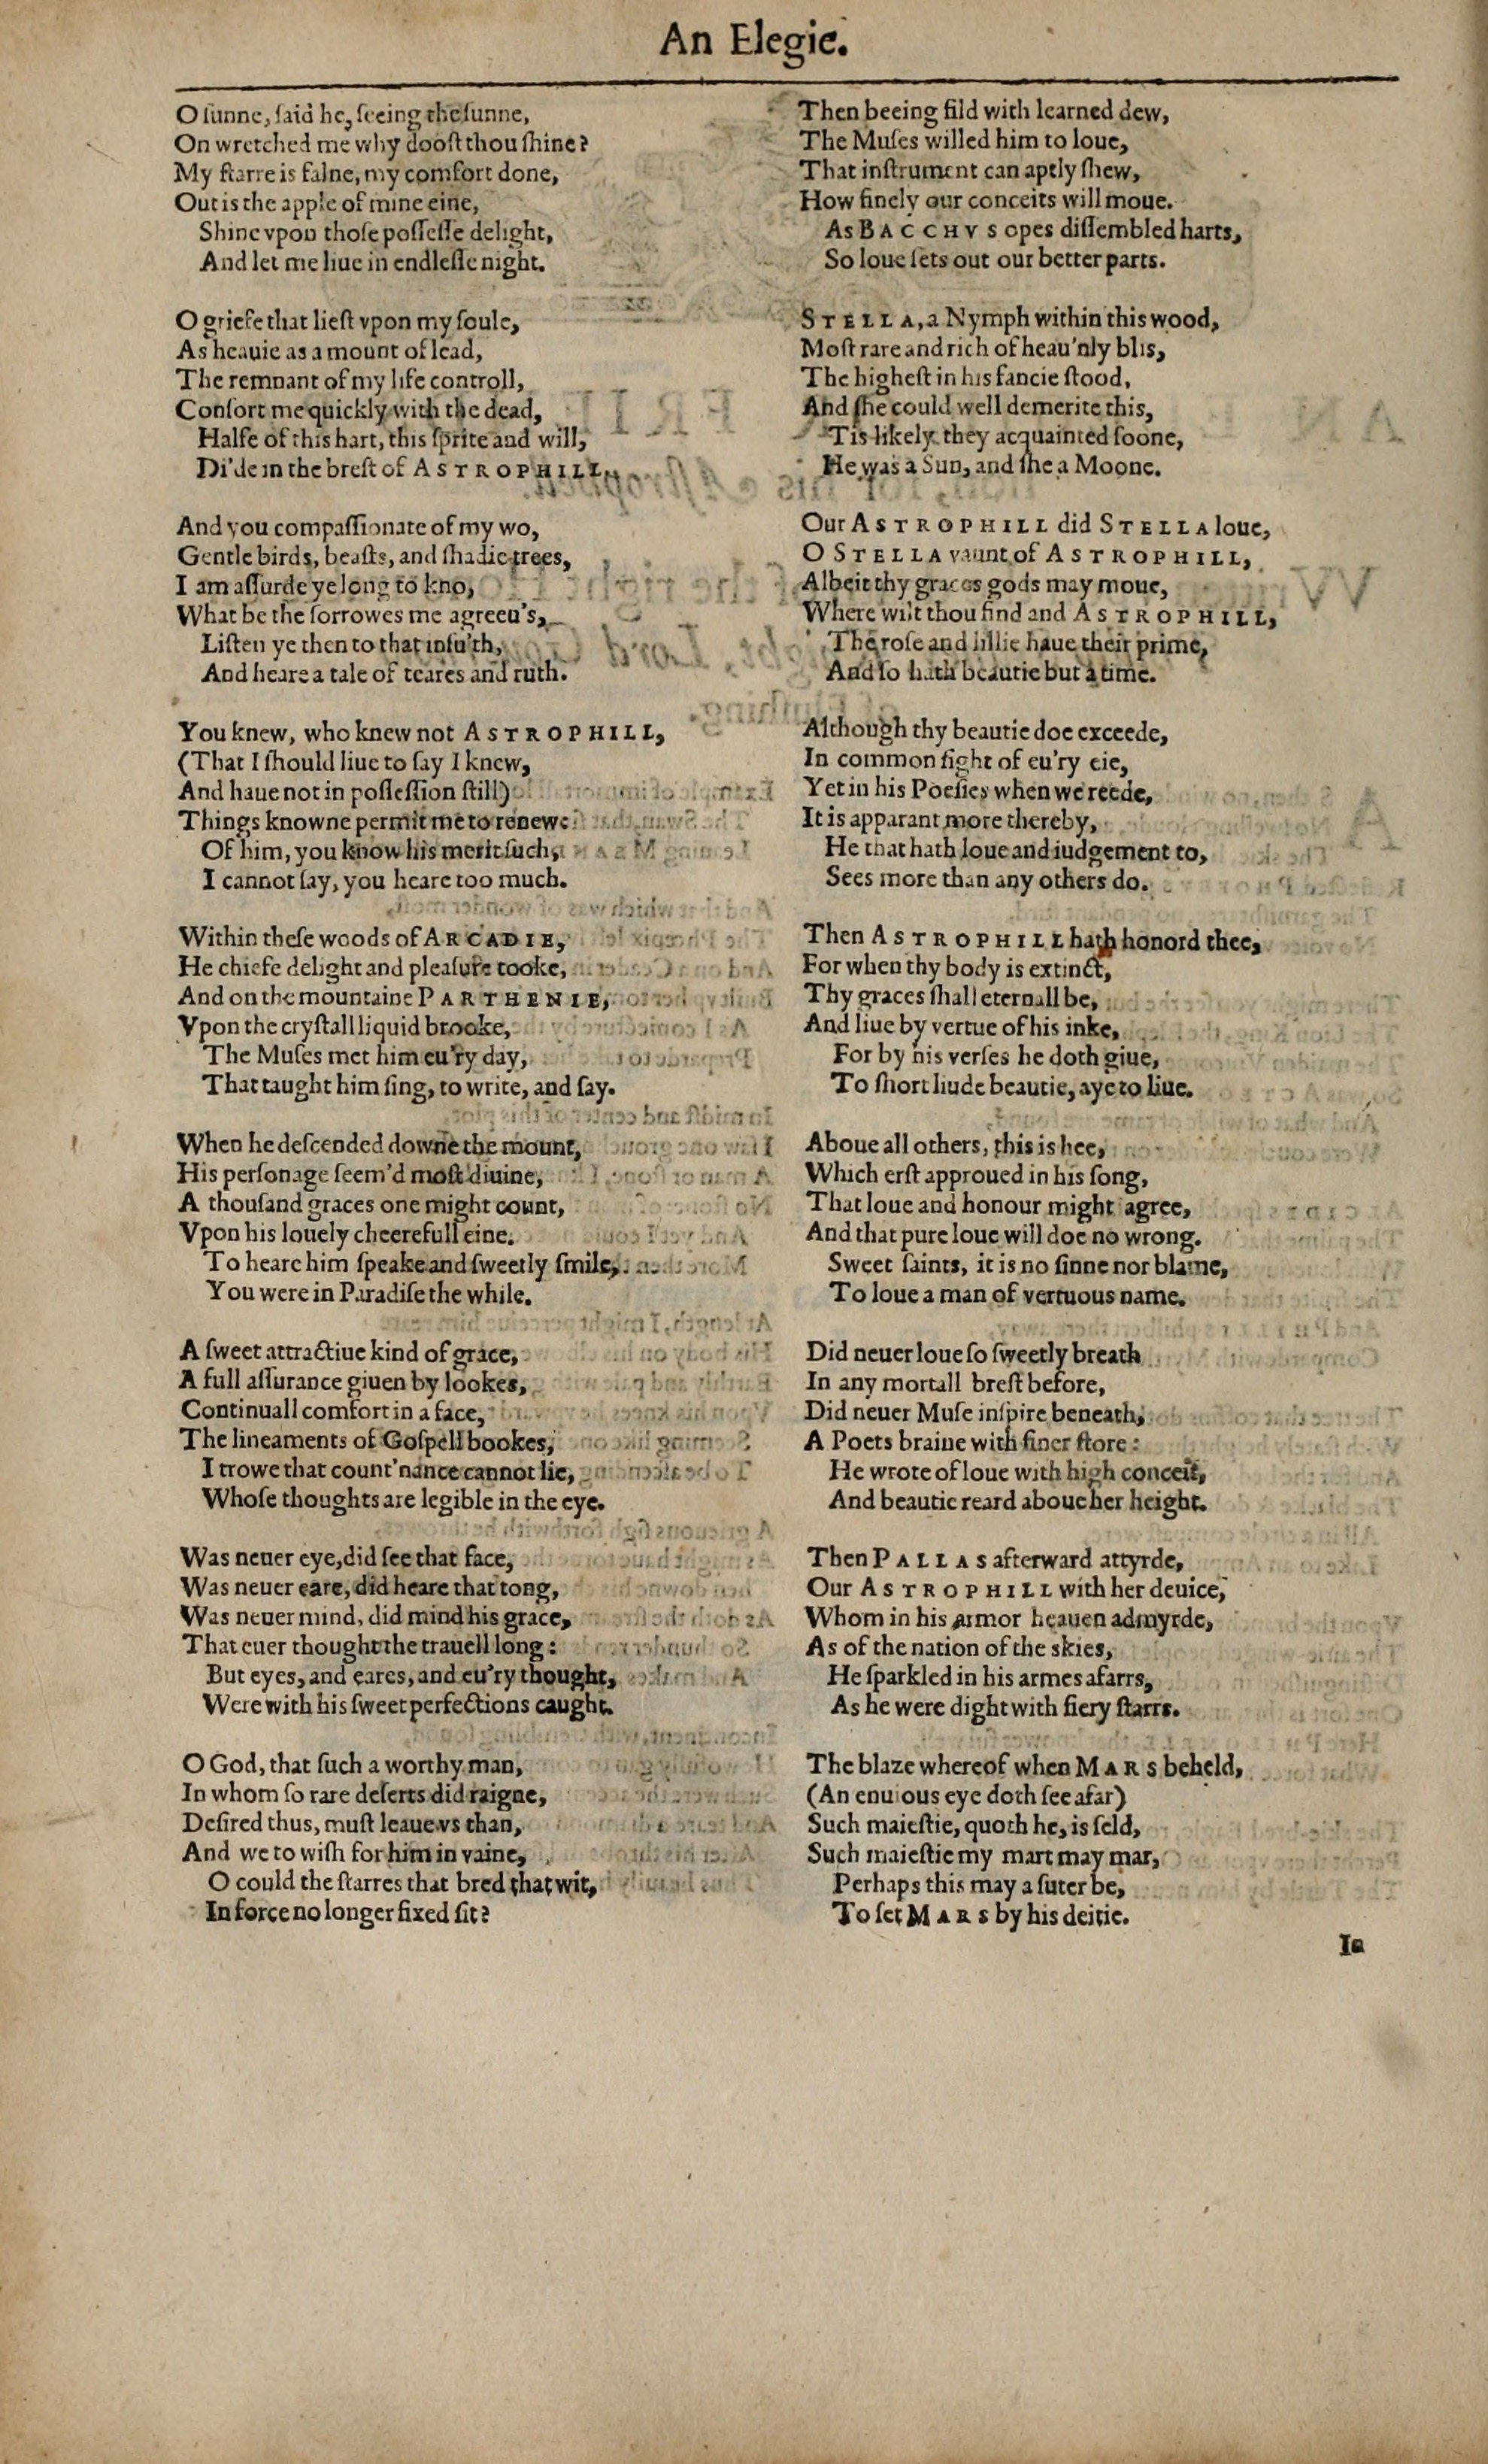 An Elegie.
O ſunne, ſaid he, ſeeing the ſunne,
On wretched me why dooſt thou ſhine?
My ſtarre is falne, my comfort done,
Out is the apple of mine eine,
Shine vpon thoſe poſſeſſe delight,
And let me liue in endleſſe night.
O griefe that lieſt vpon my ſoule,
As heauie as a mount of lead,
The remnant of my life controll,
Conſort me quickly with the dead,
Halfe of this hart, this ſprite and will,
Di'de in the breſt of ASTROPHILL.
And you compaſſionate of my wo,
Gentle birds, beaſts, and ſhadie trees,
I am aſſurde ye long to kno,
What be the ſorrowes me agreeu's,
Liſten ye then to that inſu'th,
And heare a tale of teares and ruth.
You knew, who knew not ASTROPHILL,
(That I ſhould liue to ſay I knew,
And haue not in poſſeſſion ſtill)
Things knowne permit me to renew:
Of him, you know his merit ſuch,
I cannot ſay, you heare too much.
Within theſe woods of ARCADIE,
He chiefe delight and pleaſure tooke,
And on the mountaine PARTHENIE,
Vpon the cryſtall liquid brooke,
The Muſes met him eu'ry day,
That taught him ſing, to write, and ſay.
When he deſcended downe the mount,
His perſonage ſeem'd moſt diuine,
A thouſand graces one might count,
Vpon his louely cheerefull eine.
To heare him ſpeake and ſweetly ſmile,
You were in Paradiſe the while.
A ſweet attractiue kind of grace,
A full aſſurance giuen by lookes,
Continuall comfort in a face,
The lineaments of Goſpell bookes,
I trowe that count'nance cannot lie,
Whoſe thoughts are legible in the eye.
Was neuer eye, did ſee that face,
Was neuer eare, did heare that tong,
Was neuer mind, did mind his grace,
That euer thought the trauell long:
But eyes, and eares, and eu'ry thought,
Were with his ſweet perfections caught.
O God, that ſuch a worthy man,
In whom ſo rare deſerts did raigne,
Deſired thus, muſt leaue vs than,
And we to wiſh for him in vaine,
O could the ſtarres that bred that wit,
In force no longer fixed ſit?
Then beeing fild with learned dew,
The Muſes willed him to loue,
That inſtrument can aptly ſhew,
How finely our conceits will moue.
As BACCHVS opes diſſembled harts,
So loue ſets out our better parts.
STELLA, a Nymph within this wood,
Moſt rare and rich of heau'nly blis,
The higheſt in his fancie ſtood,
And ſhe could well demerite this,
'Tis likely they acquainted ſoone,
He was a Sun, and ſhe a Moone.
Our ASTROPHILL did STELLA loue,
O STELLA vaunt of ASTROPHILL,
Albeit thy graces gods may moue,
Where wilt thou find and ASTROPHILL,
The roſe and lillie haue their prime,
And ſo hath beautie but a time.
Although thy beautie doe exceede,
In common ſight of eu'ry eie,
Yet in his Poeſies when we reede,
It is apparant more thereby,
He that hath loue and iudgement to,
Sees more than any others do.
Then ASTROPHILL hath honord thee,
For when thy body is extinct,
Thy graces ſhall eternall be,
And liue by vertue of his inke,
For by his verſes he doth giue,
To ſhort liude beautie, aye to liue.
Aboue all others, this is hee,
Which erſt approued in his ſong,
That loue and honour might agree,
And that pure loue will doe no wrong.
Sweet ſaints, it is no ſinne nor blame,
To loue a man of vertuous name.
Did neuer loue ſo ſweetly breath
In any mortall breſt before,
Did neuer Muſe inſpire beneath,
A Poets braine with finer ſtore:
He wrote of loue with high conceit,
And beautie reard aboue her height.
Then PALLAS afterward attyrde,
Our ASTROPHILL with her deuice,
Whom in his armor heauen admyrde,
As of the nation of the skies,
He ſparkled in his armes afarrs,
As he were dight with fiery ſtarrs.
The blaze whereof when MARS beheld,
(An enuious eye doth ſee afar)
Such maieſtie, quoth he, is ſeld,
Such maieſtie my mart may mar,
Perhaps this may a ſuter be,
To ſet MARS by his deitie.
In